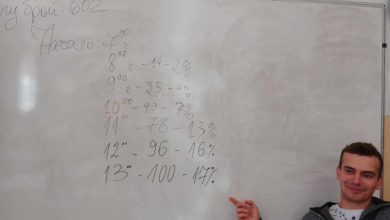 брой: 602
Начало 7⁰⁰
8⁰⁰
9⁰⁰ - 25 - 4%
10⁰⁰ - 43 - 7%
11⁰⁰ - 78 - 13%
12⁰⁰ - 96 - 16%
13⁰⁰ - 100 - 17%